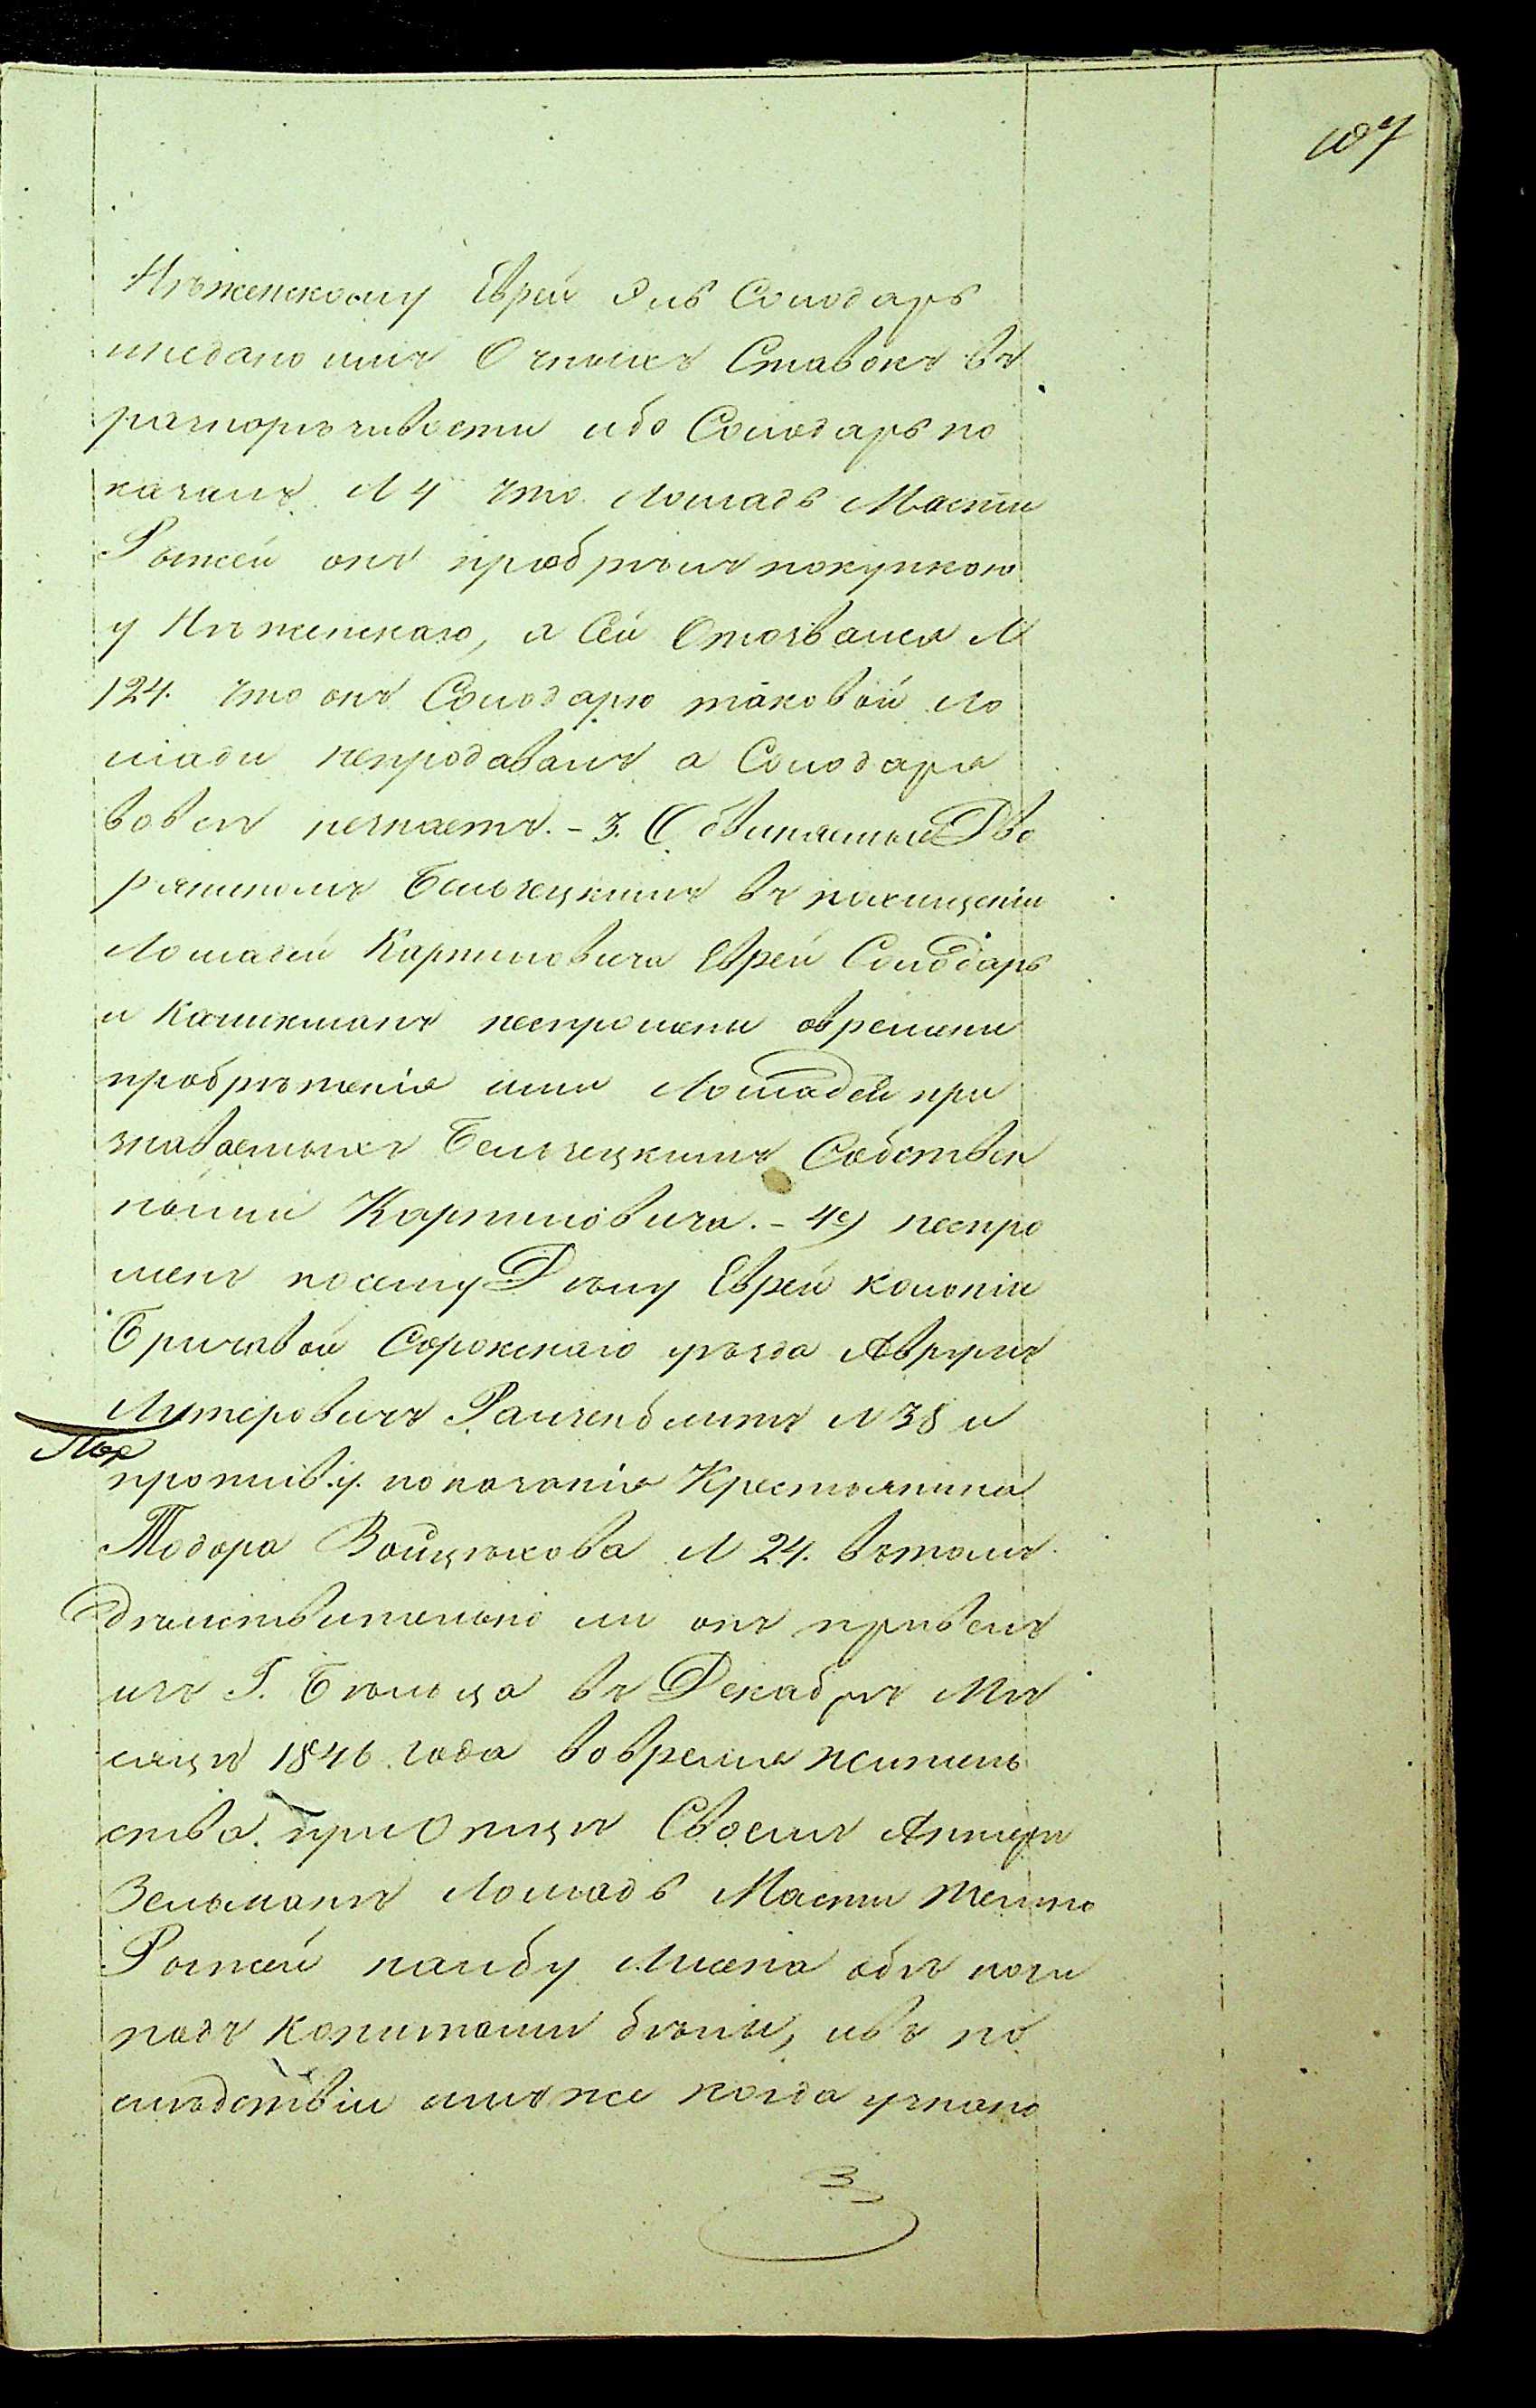 107
Нѣженскому Еврей Эль Солодарь
недано имъ Очныхъ Ставокъ въ
разнорѣчивости ибо Солодарь по
казалъ №4 что Лошадь Масти
Рыжей онъ пріобрѣлъ покупкою
у Нѣженскаго, а Сей Отозвался №
124. что онъ Солодарю таковой Ло
шади непродавалъ а Солодаря
вовсе незнаетъ. - 3. Обвиняемые Дво
ряниномъ Бельчецкимъ въ похищеніи
Лошадей Карпиловича Еврей Солодарь
и Калихманъ неспрошены овремени
пріобрѣтенія ими Лошадей при
знаваемыхъ Бельчецкимъ Собствен
ными Карпиловича. - 4е) неспро
шенъ посему Дѣлу Еврей колоніи
Бричевой Сорокскаго уѣзда Аврумъ
Лузеровичъ №38 и
противу. показанія Крестьянина
Тодора Войцѣхова №24. вътомъ
дѣйствительно ли онъ привелъ
изъ Г. Бѣльца въ Декабрѣ Мѣ
сяцѣ 1846 года вовремя житель
ства. при Отцѣ Своемъ
Зельманѣ Лошадь Масти темно
Рыжей налбу Лисена обѣ ноги
подъ копитами бѣлы, ивъ по
слѣдствіи имъ же когда узнано